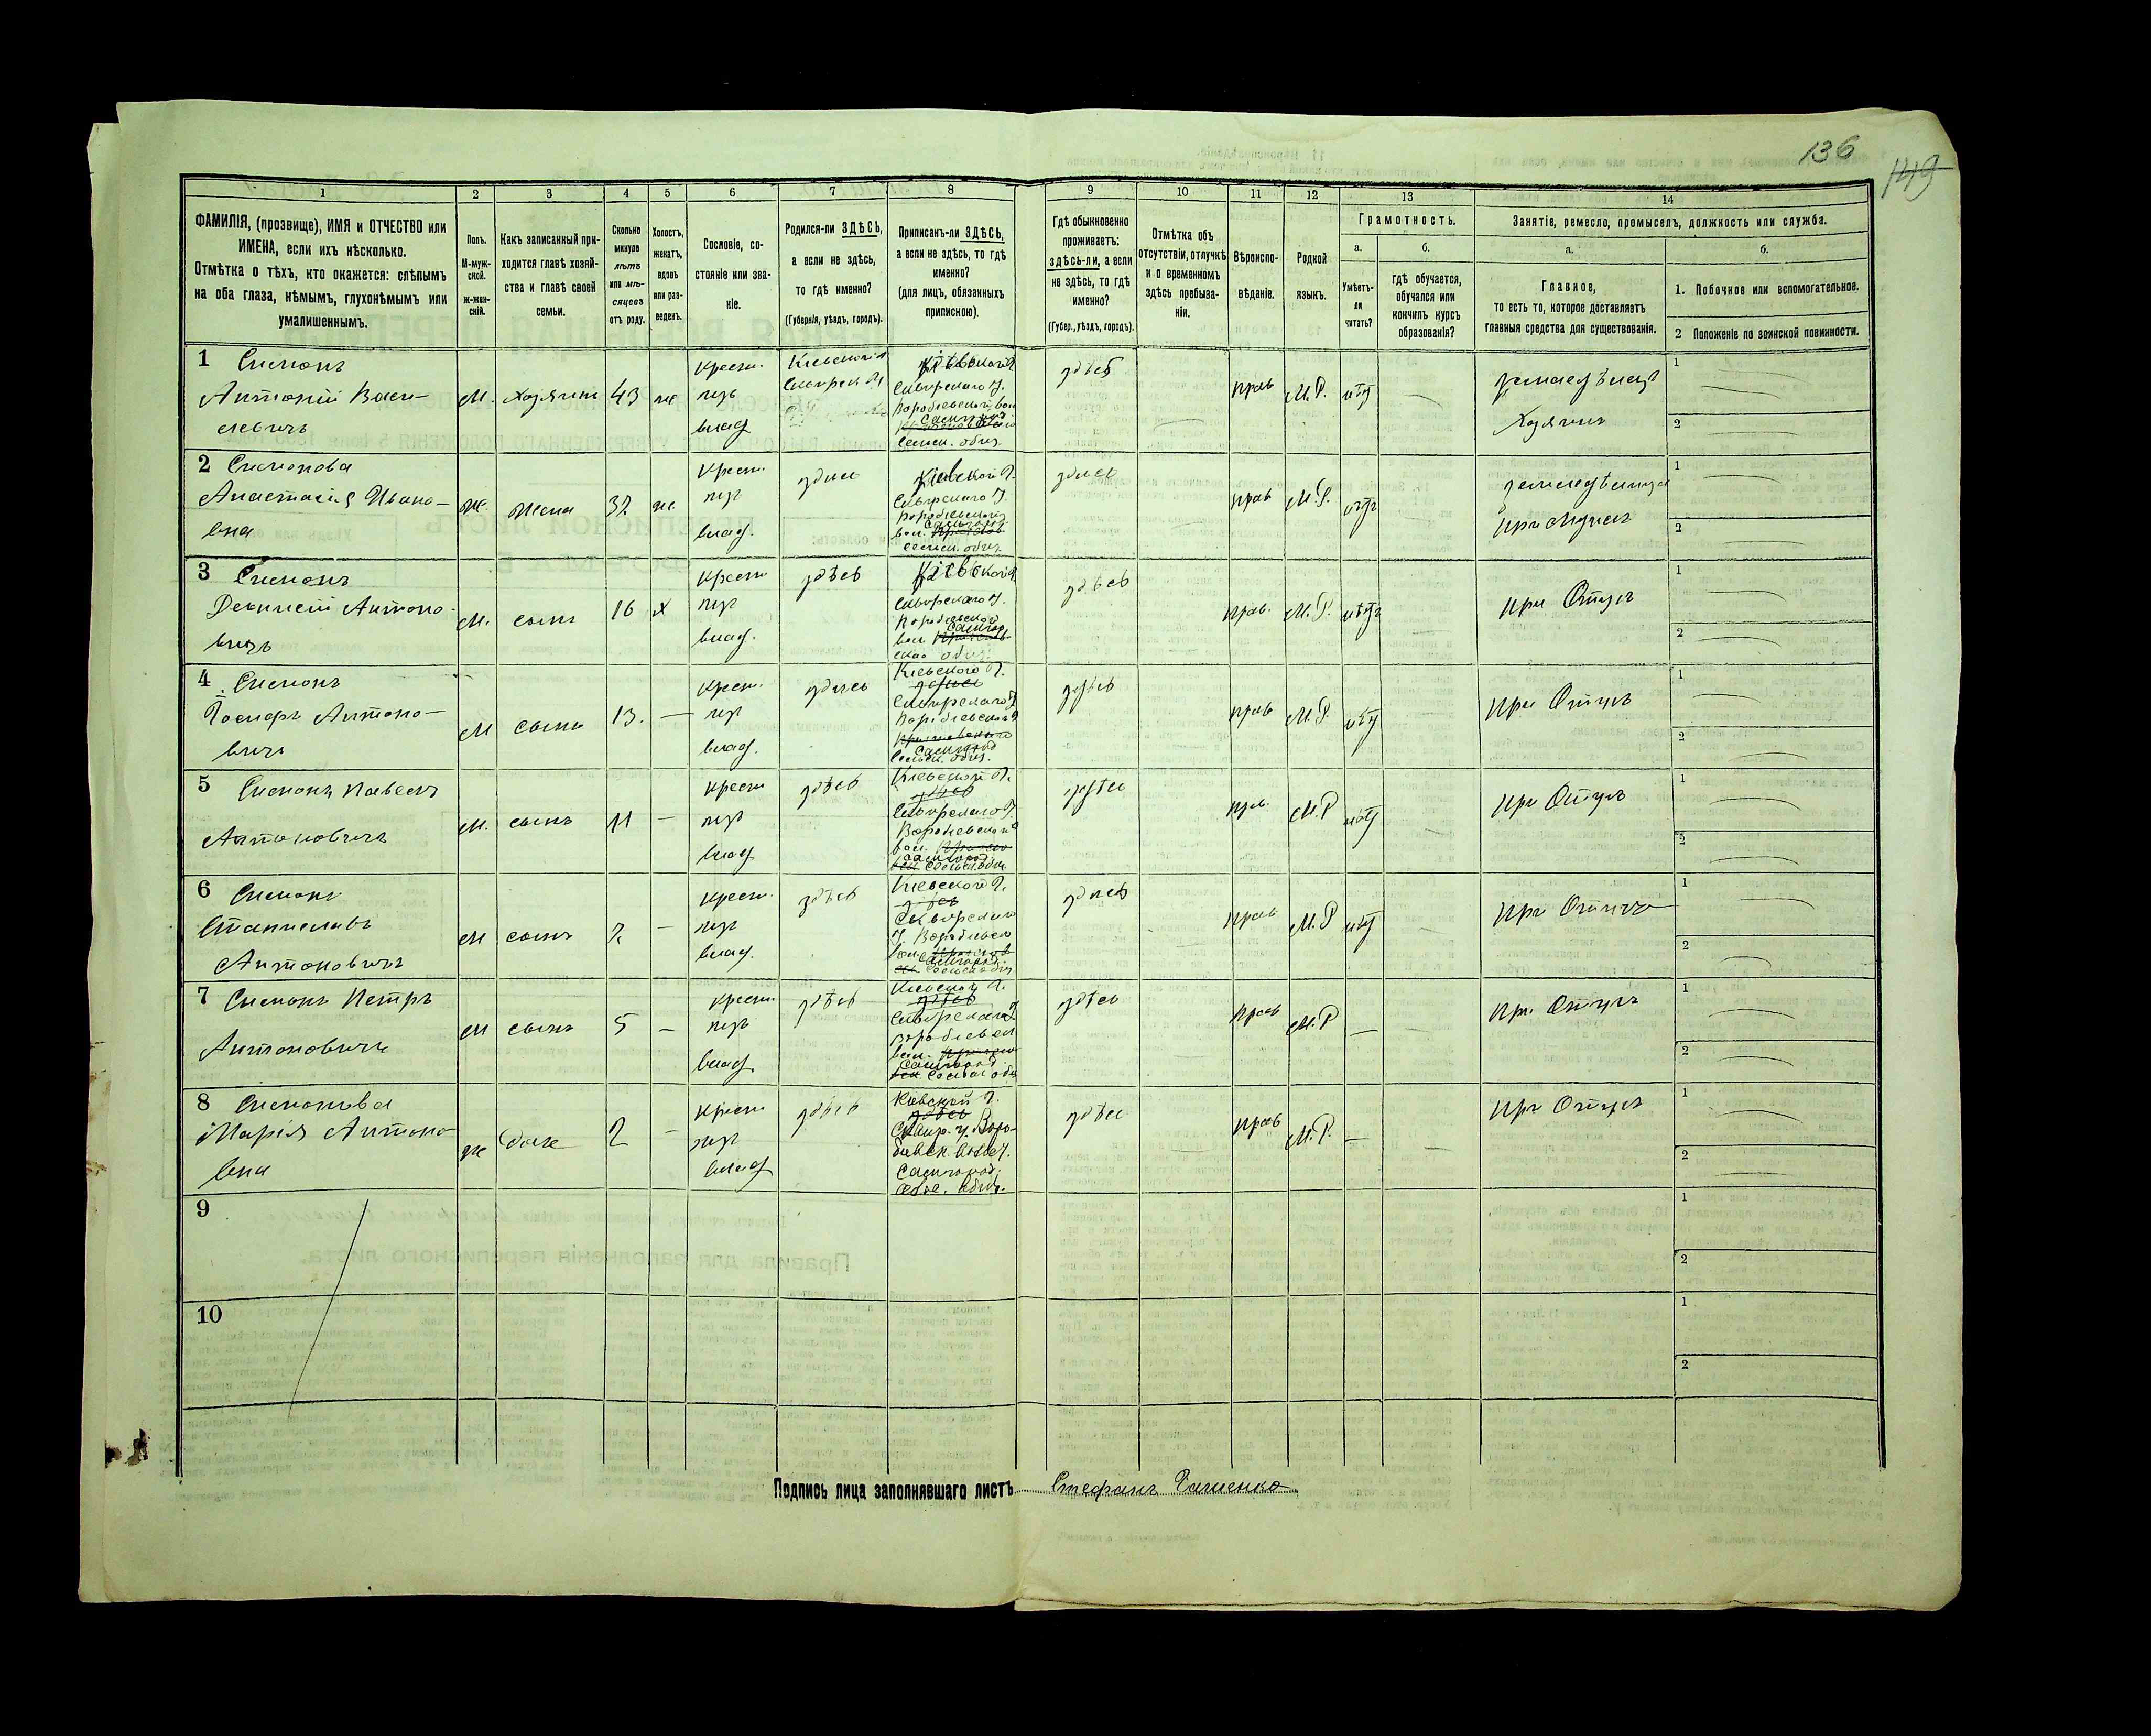 136
149
1 2 3 4 5 6 7 8 9 10 11 12 13 14
ФАМИЛІЯ, (прозвище), ИМЯ и ОТЧЕСТВО или
ИМЕНА, если ихъ нѣсколько.
Отмѣтка о тѣхъ, кто окажется: слѣпымъ
на оба глаза, нѣмымъ, глухонѣмымъ или
умалишеннымъ.
Полъ.
М-муж-
ской.
Ж-жен-
скій.
Какъ записанный при-
ходится главѣ хозяй-
ства и главѣ своей
семьи.
Сколько
минуло
лѣтъ
или мѣ-
сяцевъ
отъ роду.
Холостъ,
женатъ,
вдовъ
или раз-
веденъ.
Сословіе, со-
стояніе или зва-
ніе.
Родился-ли ЗДѢСЬ,
а если не здѣсь,
то гдѣ именно?
(Губернія, уѣздъ, городъ).
Приписанъ-ли ЗДѢСЬ,
а если не здѣсь, то гдѣ
именно?
(для лицъ, обязанныхъ
припискою).
Гдѣ обыкновенно
проживаетъ:
здѣсь-ли, а если
не здѣсь, то гдѣ
именно?
(Губер., уѣздъ, городъ).
Отмѣтка объ
отсутствіи, отлучкѣ
и о временномъ
здѣсь пребыва-
ніи.
Вѣроиспо-
вѣданіе.
Родной
языкъ.
Грамотность.
а.
Умѣетъ-
ли
читать?
б.
гдѣ обучается,
обучался или
кончилъ курсъ
образованія?
Занятіе, ремесло, промыселъ, должность или служба.
а.
Главное,
то есть то, которое доставляетъ
главныя средства для существованія.
б.
1. Побочное или вспомогательное.
2 Положеніе по воинской повинности.
1 Симонъ
Антоній Васи-
левичъ
М. хозяинъ 43 ж
крест.
изъ
влад
Кіевской
Сквирск
Кіевской г
Сквирскаго у.
Воробіевской вол
Самгород
Сельск. общ.
здѣсь
прав М.Р. нѣтъ
земледѣлецъ
Хозяинъ
1
2
2 Симонова
Анастасія Ивано-
вна
ж. жена 32 ж.
крест.
изъ
влад.
здѣсь
Кіевской г.
Сквирскаго у.
Воробіевской
Самгород.
вол.
сельск. общ.
здѣсь
прав М.Р. нѣтъ
земледѣлица
при мужѣ
1
2
3 Симонъ
Діонисій Антоно-
вичъ
М. сынъ 16 х
крест
изъ
влад.
здѣсь
Кіевской г.
Сквирскаго у.
Воробіевской
Самгор.
вол.
ского общ.
здѣсь
прав. М.Р. нѣтъ
при Отцѣ
1
2
4 Симонъ
Іосифъ Антоно-
вичъ
М сынъ 13. —
крест.
изъ
влад.
здѣсь
Кіевского г.
здѣсь
Сквирскаго у
Воробіевской
Самгород
Сельск. общ.
здѣсь
прав М.Р. нѣтъ
при Отцѣ
1
2
5 Симонъ Павелъ
Антоновичъ
М. сынъ 11 —
крест
изъ
влад
здѣсь
Кіевской г.
здѣсь
Сквирскаго у.
Воробіевской
вол.
Самгород
Сельск. общ.
здѣсь
прав. М.Р нѣтъ
при Отцѣ
1
2
6 Симонъ
Станиславъ
Антоновичъ
М сынъ 7. —
крест.
изъ
влад.
здѣсь
Кіевской г.
здѣсь
Сквирскаго
у. Воробіевск
вол
Самгород.
Сельск общ
здѣсь
прав М.Р нѣтъ
при Отцѣ
1
2
7 Симонъ Петръ
Антоновичъ
М сынъ 5 —
крест
изъ
влад.
здѣсь
Кіевской г.
здѣсь
Сквирскаго у
Воробіевск
вол.
Самгород.
Сельск общ
здѣсь
прав М.Р —
при Отцѣ
1
2
8 Симонова
Марія Антоно
вна
ж дочь 2 —
крест
изъ
влад
здѣсь
Кіевской г.
здѣсь
Сквир. у. Воро-
бьевск. волост.
Самгород.
сел. общ.
здѣсь
прав М.Р. —
при Отцѣ
1
2
9
1
2
10
1
2
Подпись лица заполнявшаго листъ Стефанъ